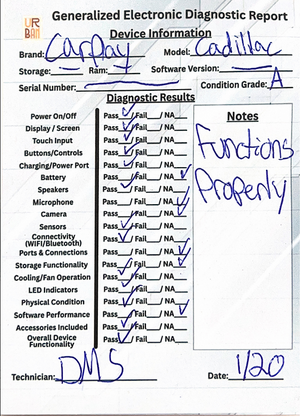 UR
BAN
Generalized Electronic Diagnostic Report
Device Information
Brand: CarPay Model: Cadillac
Storage: Ram: Software Version:
Serial Number: Condition Grade: A
Diagnostic Results
Power On/Off Pass ✓/Fail /NA
Display / Screen Pass ✓/Fail /NA
Touch Input Pass ✓/Fail /NA
Buttons/Controls Pass ✓/Fail /NA
Charging/Power Port Pass ✓/Fail /NA
Battery Pass /Fail /NA ✓
Speakers Pass ✓/Fail /NA
Microphone Pass /Fail /NA ✓
Camera Pass /Fail /NA ✓
Sensors Pass ✓/Fail /NA
Connectivity
(WIFI/Bluetooth) Pass ✓/Fail /NA
Ports & Connections Pass /Fail /NA ✓
Storage Functionality Pass /Fail /NA ✓
Cooling/Fan Operation Pass ✓/Fail /NA
LED Indicators Pass ✓/Fail /NA
Physical Condition Pass ✓/Fail /NA
Software Performance Pass /Fail /NA ✓
Accessories Included Pass ✓/Fail /NA
Overall Device
Functionality Pass ✓/Fail /NA
Notes
Functions
Properly
Technician: DMS Date: 1/20